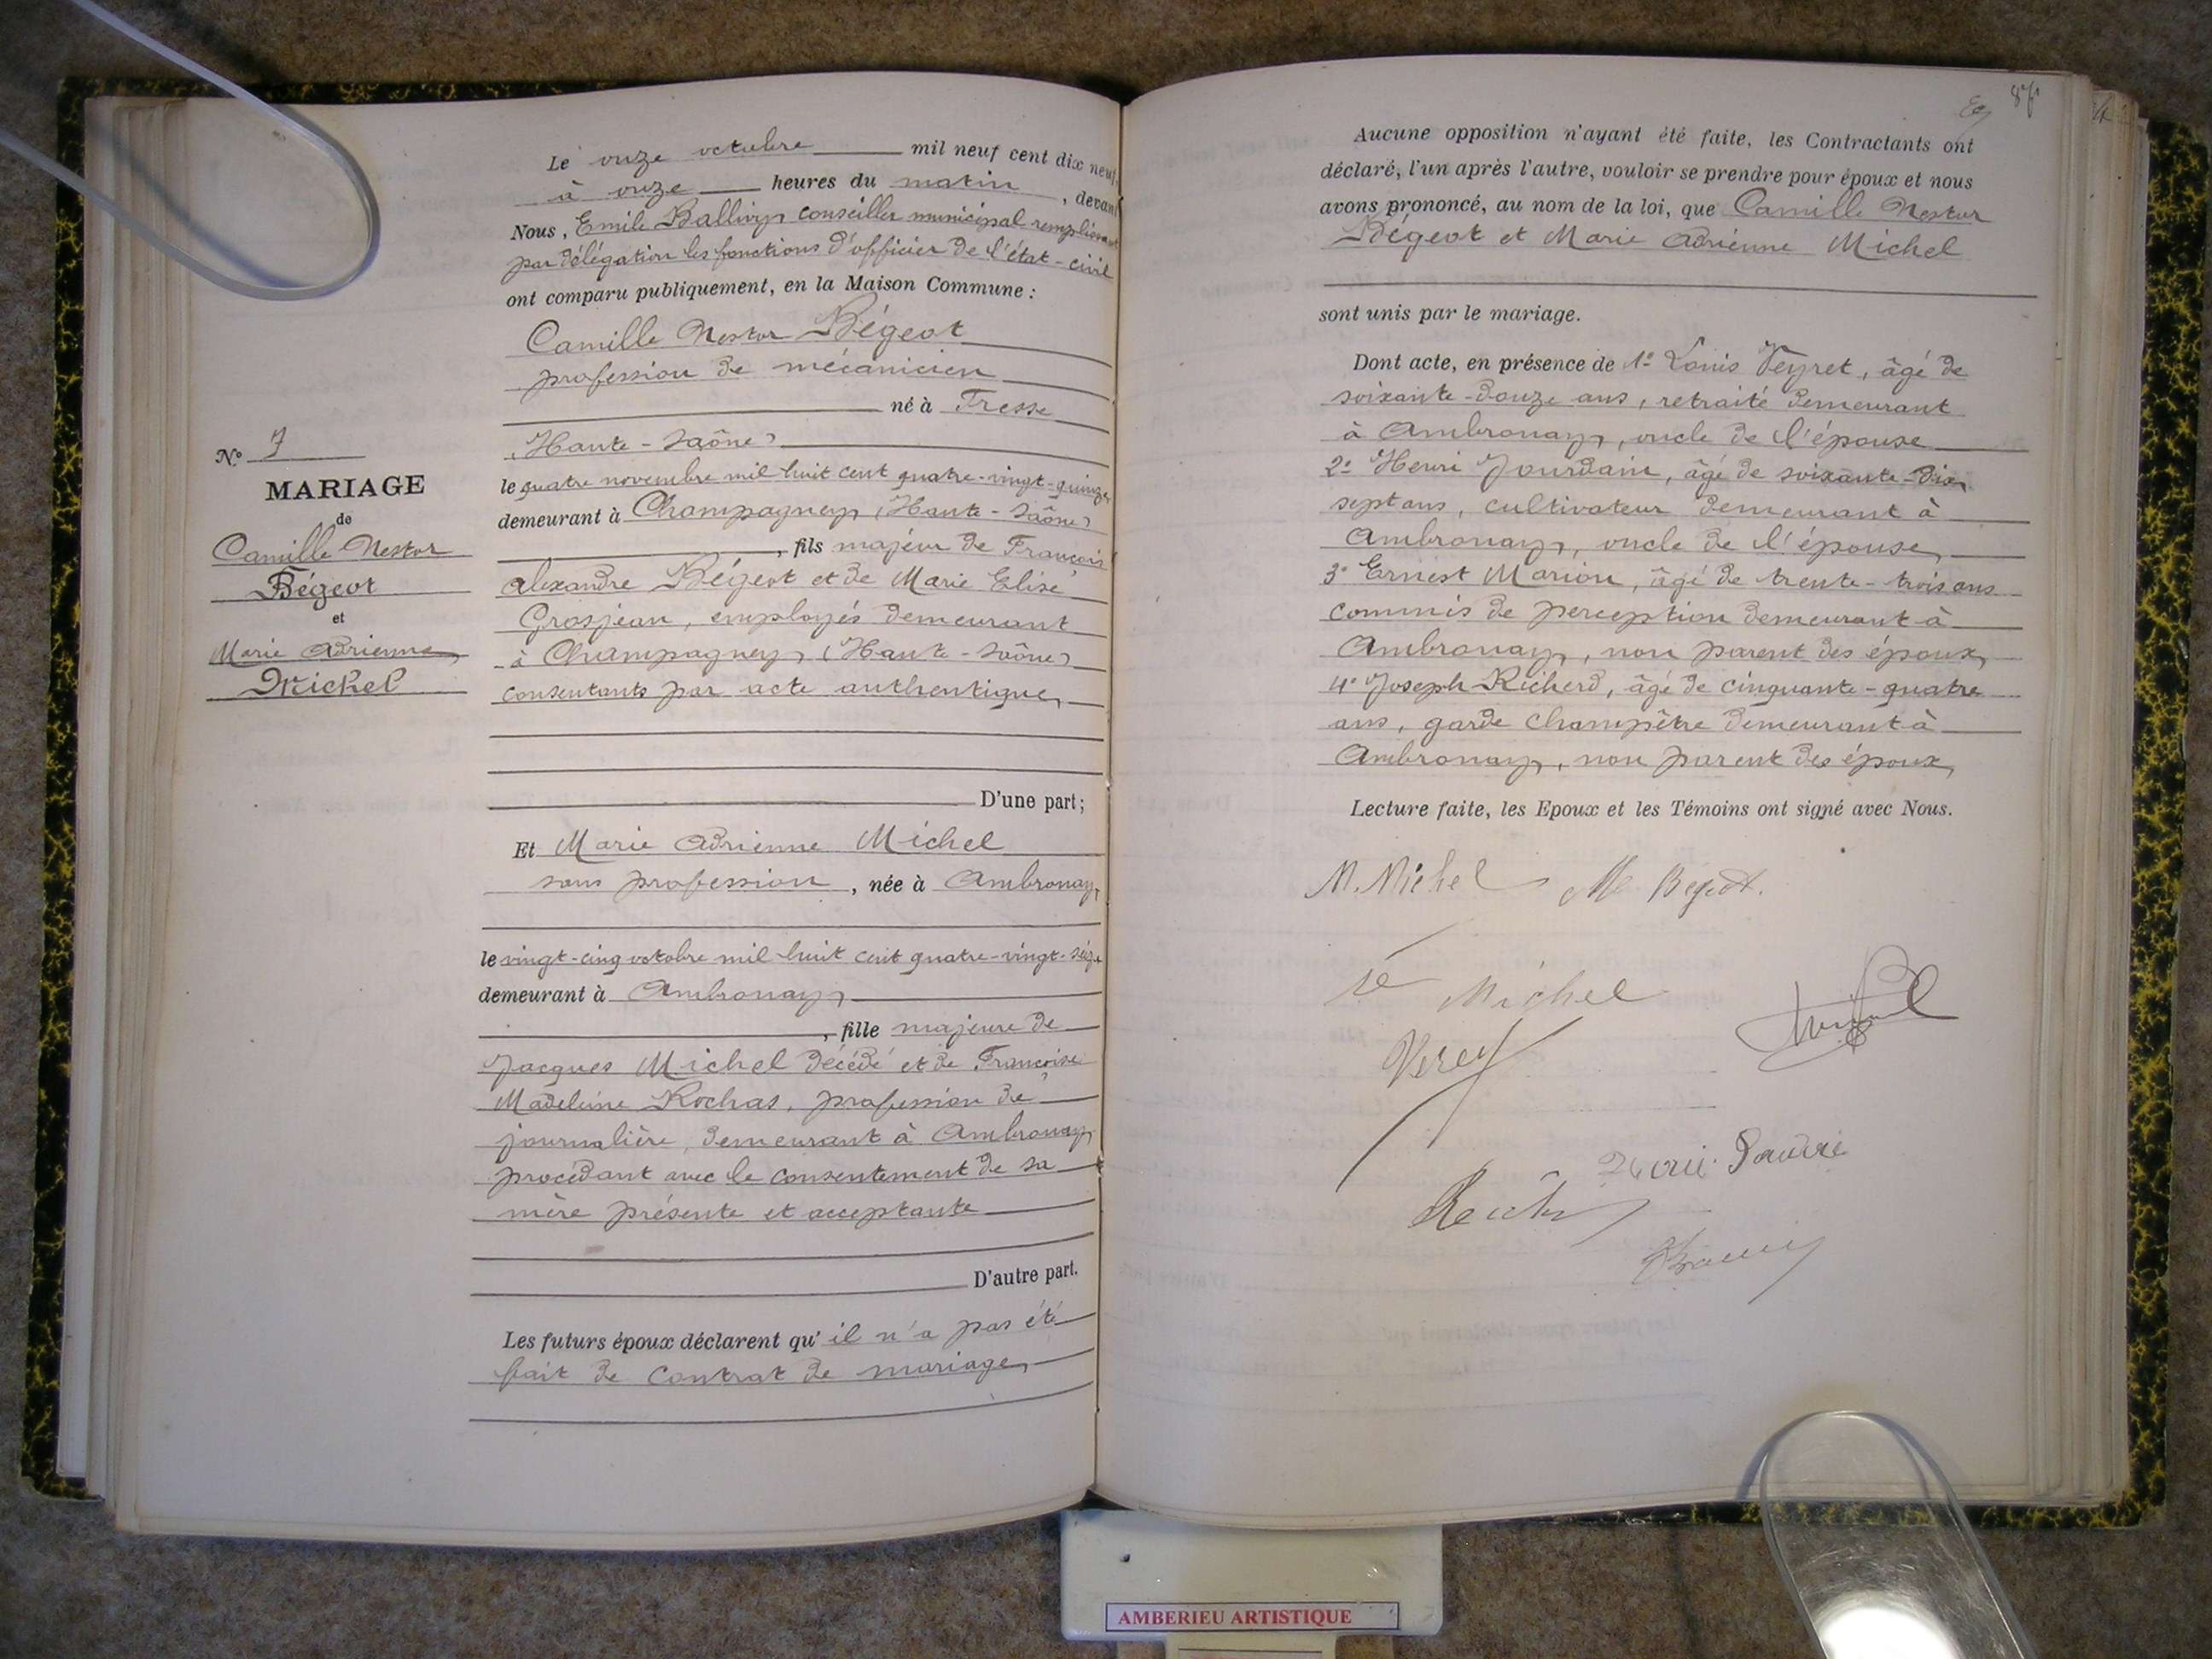 Le onze octobre mil neuf cent dix neuf,
à onze heures du matin, devant
Nous, Emile Ballivy conseiller municipal remplissant
par délégation les fonctions d'officier de l'état-civil
ont comparu publiquement, en la Maison Commune :
Camille Nestor Bégeot
profession de mécanicien
né à Fresse
(Haute-Saône)
le quatre novembre mil huit cent quatre-vingt-quinze
demeurant à Champagney (Haute-Saône)
, fils majeur de François
Alexandre Bégeot et de Marie Elise
Grosjean, employés demeurant
à Champagney (Haute-Saône)
consentants par acte authentique
D'une part ;
Et Marie Adrienne Michel
sans profession, née à Ambronay
le vingt-cinq octobre mil huit cent quatre-vingt-seize
demeurant à Ambronay
, fille majeure de
Jacques Michel décédé et de Françoise
Madeleine Rochas, profession de
journalière, demeurant à Ambronay
procédant avec le consentement de sa
mère présente et acceptante
D'autre part.
Les futurs époux déclarent qu'il n'a pas été
fait de contrat de mariage
N° 7
MARIAGE
de
Camille Nestor
Bégeot
et
Marie Adrienne
Michel
87
Aucune opposition n'ayant été faite, les Contractants ont
déclaré, l'un après l'autre, vouloir se prendre pour époux et nous
avons prononcé, au nom de la loi, que Camille Nestor
Bégeot et Marie Adrienne Michel
sont unis par le mariage.
Dont acte, en présence de 1° Louis Veyret, âgé de
soixante-douze ans, retraité demeurant
à Ambronay, oncle de l'épouse
2° Henri Jourdain, âgé de soixante-dix
sept ans, cultivateur demeurant à
Ambronay, oncle de l'épouse
3° Ernest Marion, âgé de trente-trois ans
commis de perception demeurant à
Ambronay, non parent des époux
4° Joseph Richerd, âgé de cinquante-quatre
ans, garde champêtre demeurant à
Ambronay, non parent des époux
Lecture faite, les Epoux et les Témoins ont signé avec Nous.
M. Michel
Bégeot.
Michel
AMBERIEU ARTISTIQUE